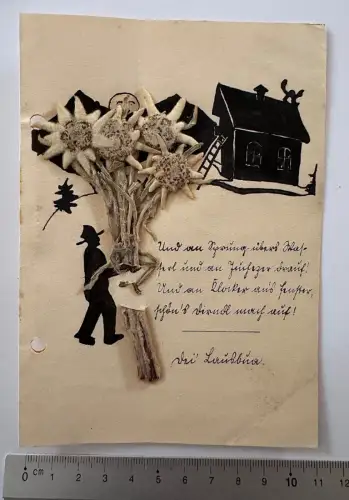 Und an Sprung übers Was-
serl und an Juchezer drauf!
Und an Klocker ans Fenster,
schön's Derndl mach auf!
Dei Lausbua.
0 cm 1 2 3 4 5 6 7 8 9 10 11 12